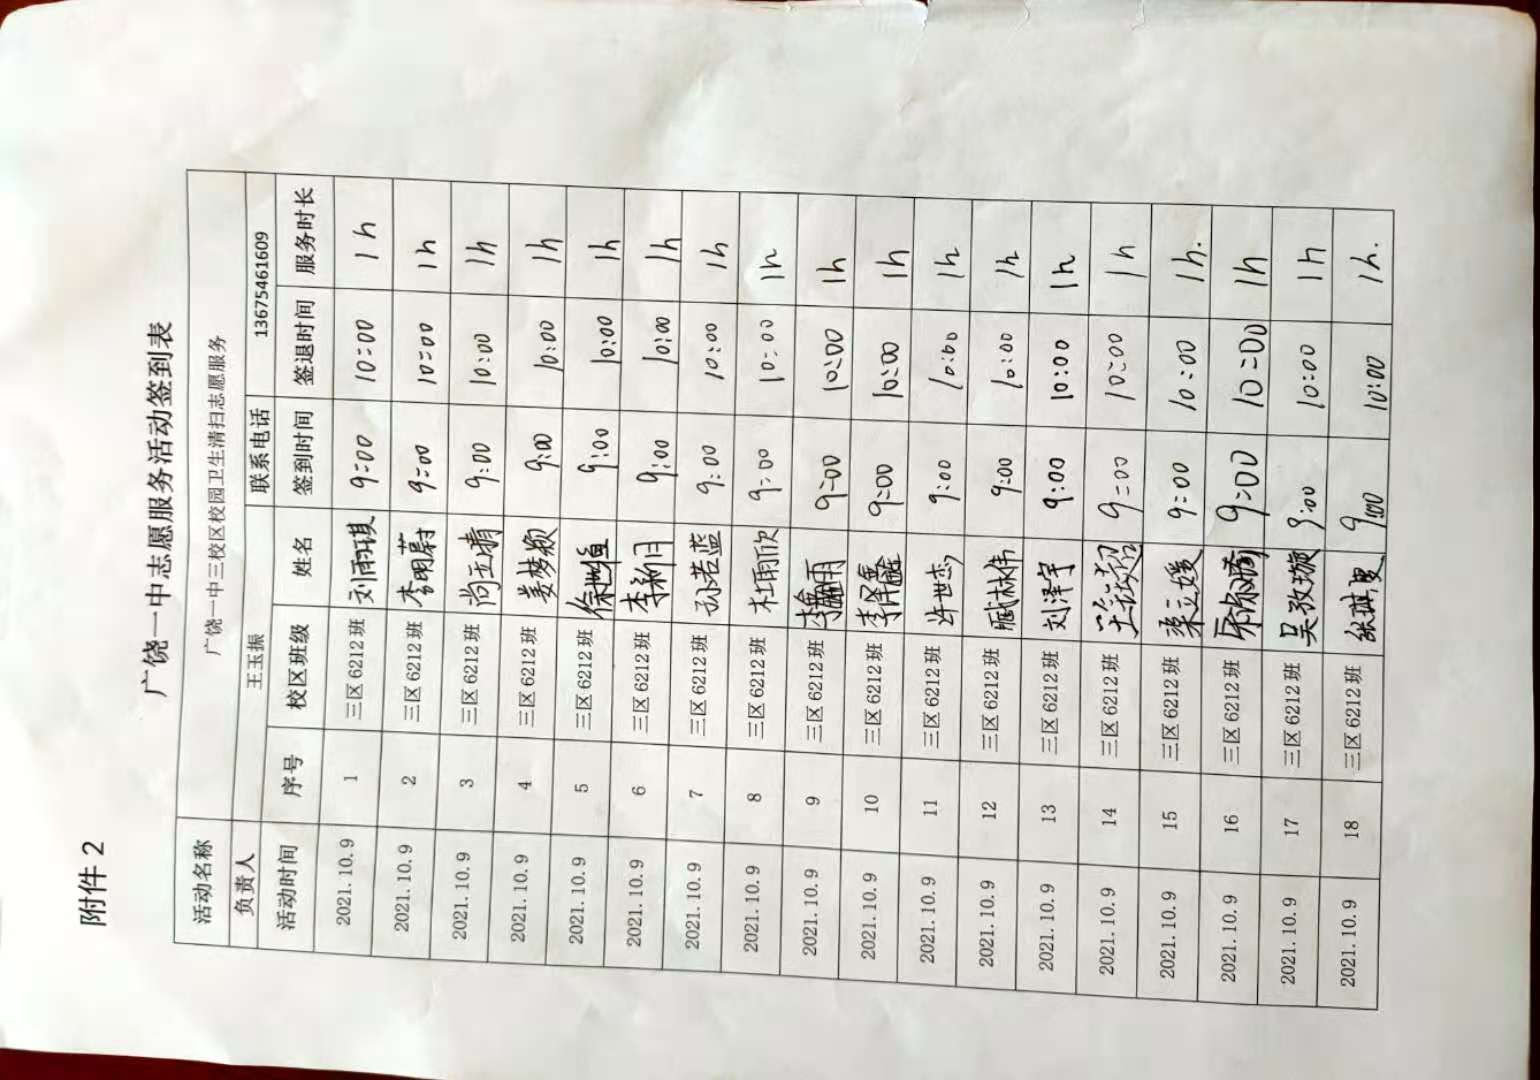 附件 2
广饶一中志愿服务活动签到表
活动名称 广饶一中三校区校园卫生清扫志愿服务
负责人 王玉振 联系电话 13675461609
活动时间 序号 校区班级 姓名 签到时间 签退时间 服务时长
2021.10.9 1 三区6212班 刘雨琪 9:00 10:00 1h
2021.10.9 2 三区6212班 李明蔚 9:00 10:00 1h
2021.10.9 3 三区6212班 尚立靖 9:00 10:00 1h
2021.10.9 4 三区6212班 姜梦颖 9:00 10:00 1h
2021.10.9 5 三区6212班 9:00 10:00 1h
2021.10.9 6 三区6212班 李新月 9:00 10:00 1h
2021.10.9 7 三区6212班 孙若蓝 9:00 10:00 1h
2021.10.9 8 三区6212班 杜雨欣 9:00 10:00 1h
2021.10.9 9 三区6212班 9:00 10:00 1h
2021.10.9 10 三区6212班 9:00 10:00 1h
2021.10.9 11 三区6212班 许世杰 9:00 10:00 1h
2021.10.9 12 三区6212班 臧林伟 9:00 10:00 1h
2021.10.9 13 三区6212班 刘泽宇 9:00 10:00 1h
2021.10.9 14 三区6212班 9:00 10:00 1h
2021.10.9 15 三区6212班 9:00 10:00 1h.
2021.10.9 16 三区6212班 9:00 10:00 1h
2021.10.9 17 三区6212班 吴孜璇 9:00 10:00 1h
2021.10.9 18 三区6212班 9:00 10:00 1h.